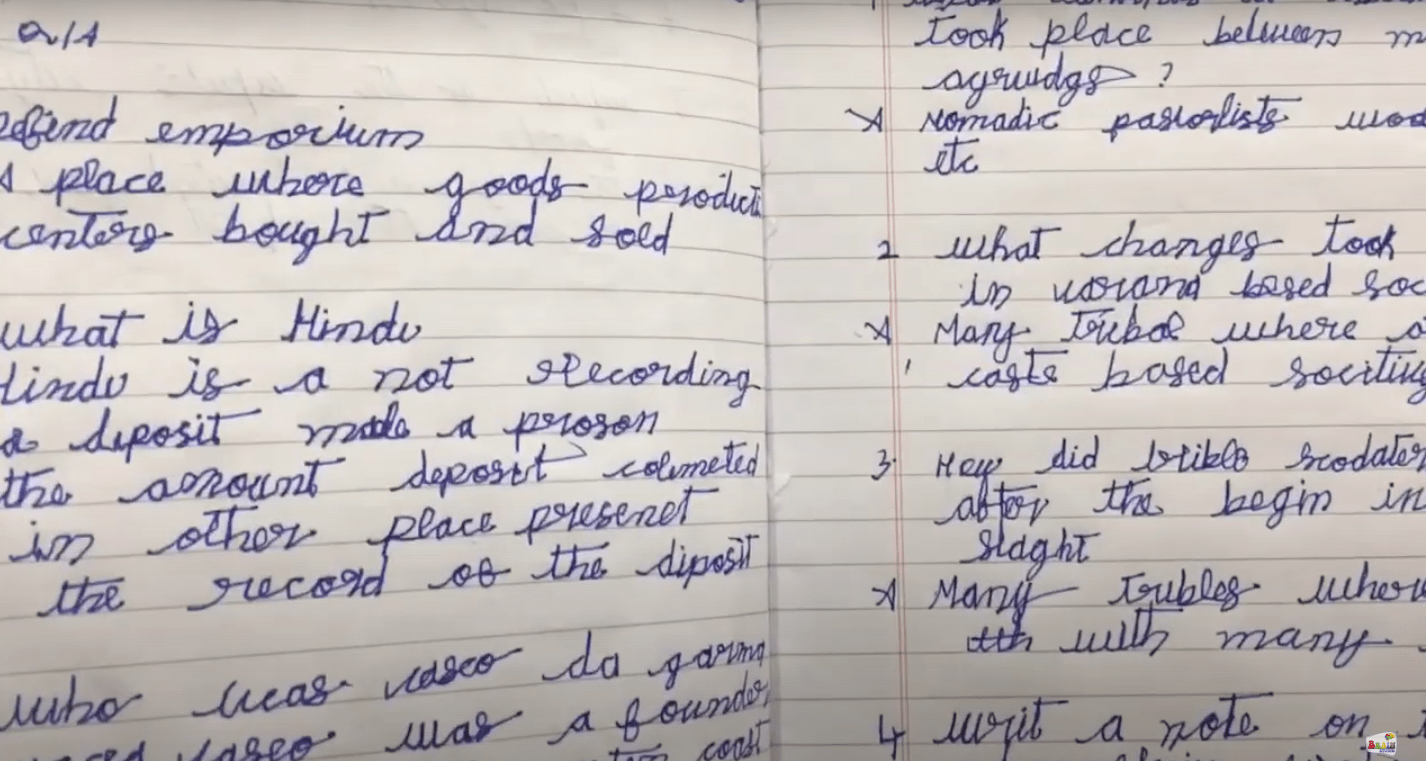 Q/A
efind emporium
A place where goods product
centers bought and sold
what is Hindu
Hindu is a not recording
a diposit made a person
the amount deposit
in other place presenet
the record of the diposit
who was vasco da gama
vasco was a founder
coast
took place between m
agruidgs ?
A Nomadic pastorlists
etc
2 what changes took
in varana based soc
A Many tribal where
caste based socities
3 Hey did tribles
after the begin in
slaght
A Many trubles where
with many
4 writ a note on